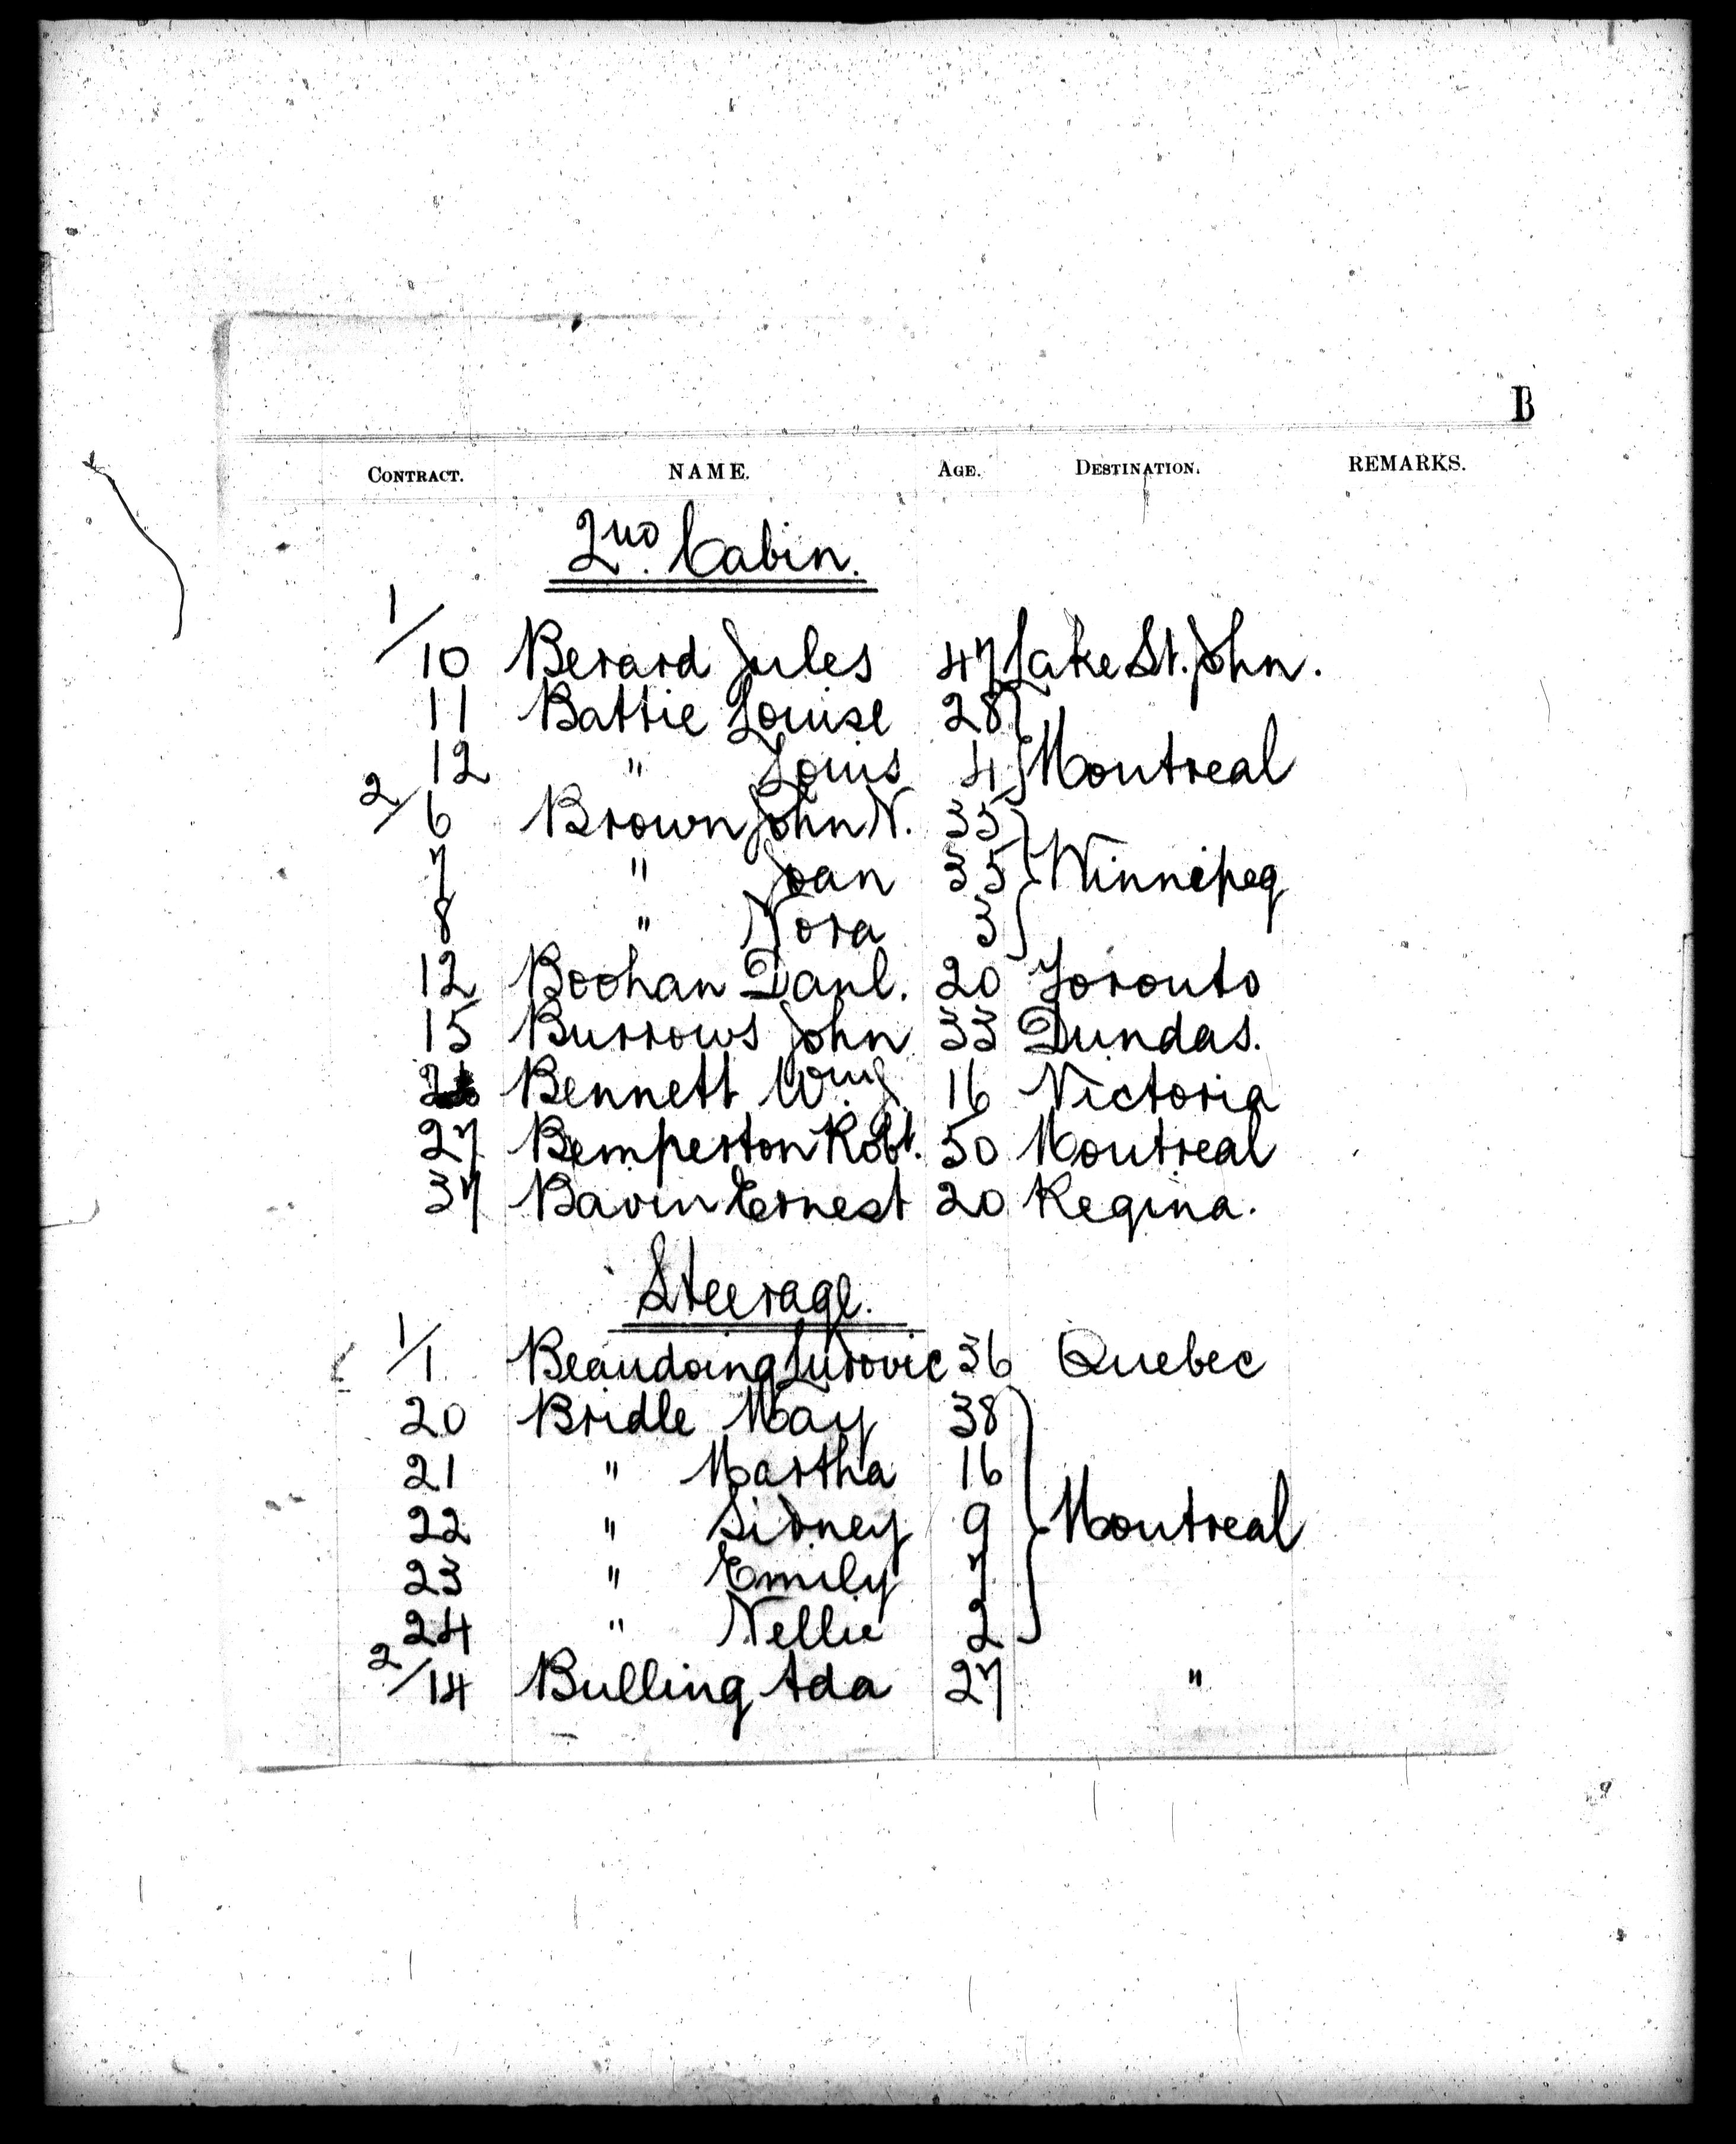 B
CONTRACT. NAME. AGE. DESTINATION. REMARKS.
2ND. Cabin.
1/10 Berard Jules 47 Lake St. John.
11 Battie Louise 28
12 " Louis 4 Montreal
2/6 Brown John N. 35
7 " Joan 35 Winnipeg
8 " Nora 3
12 Boohan Danl. 20 Toronto
15 Burrows John 33 Dundas.
Bennett Wm J. 16 Victoria
27 Bemperton Robt. 50 Montreal
37 Bavin Ernest 20 Regina.
Steerage.
1/1 Beaudoing Ludovic 36 Quebec
20 Bridle May 38
21 " Martha 16
22 " Sidney 9 Montreal
23 " Emily 7
24 " Nellie 2
2/14 Bulling Ada 27 "